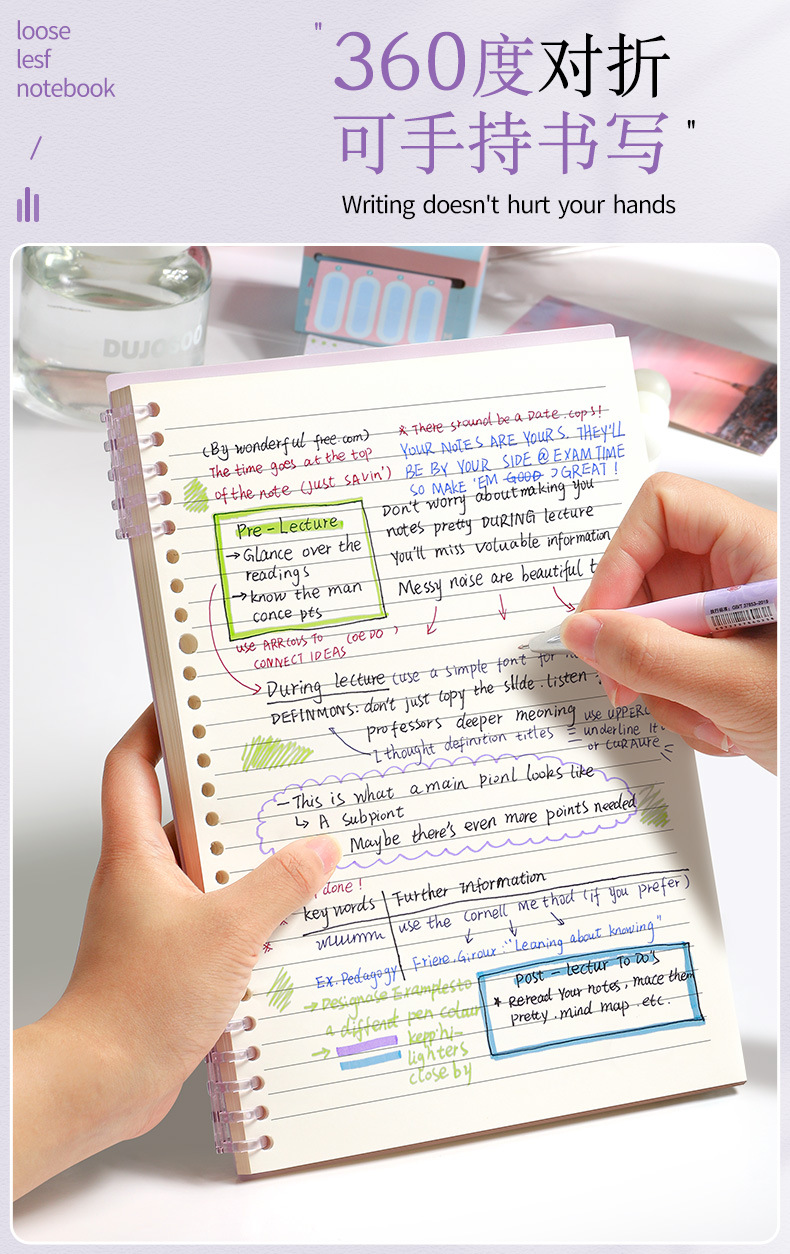 loose
lesf
notebook
/
"360度对折
可手持书写"
Writing doesn't hurt your hands
DUJO
(By wonderful free.com)
The time goes at the top
of the note (just savin')
* There sround be a Date .cops!
YOUR NOTES ARE YOURS. THEY'LL
BE BY YOUR SIDE @ EXAM TIME
SO MAKE 'EM GOOD GREAT!
Pre-Lecture
→ Glance over the
readings
→ know the man
conce pts
Don't worry about making you
notes pretty DURING lecture
You'll miss valuable information
Messy noise are beautiful t
use ARROWS TO
CONNECT IDEAS
During lecture (use a simple font for
DEFINMONS: don't just copy the slide. listen :
professors deeper meoning
I thought definition titles =
use UPPERC
underline It
or CURAURE
- This is what a main pionl looks like
↳ A Subpiont
Maybe there's even more points needed
done!
key words | Further Information
use the Cornell Method (if you prefer)
Ex. Pedagogy
Friere. Giroux: "Leaning about knowing"
→ Designase Examplesto
a diffend pen colour
→ kepp hi-
lighters
close by
Post - lectur To Do's
* Reread Your notes, mace them
pretty .mind map .etc.